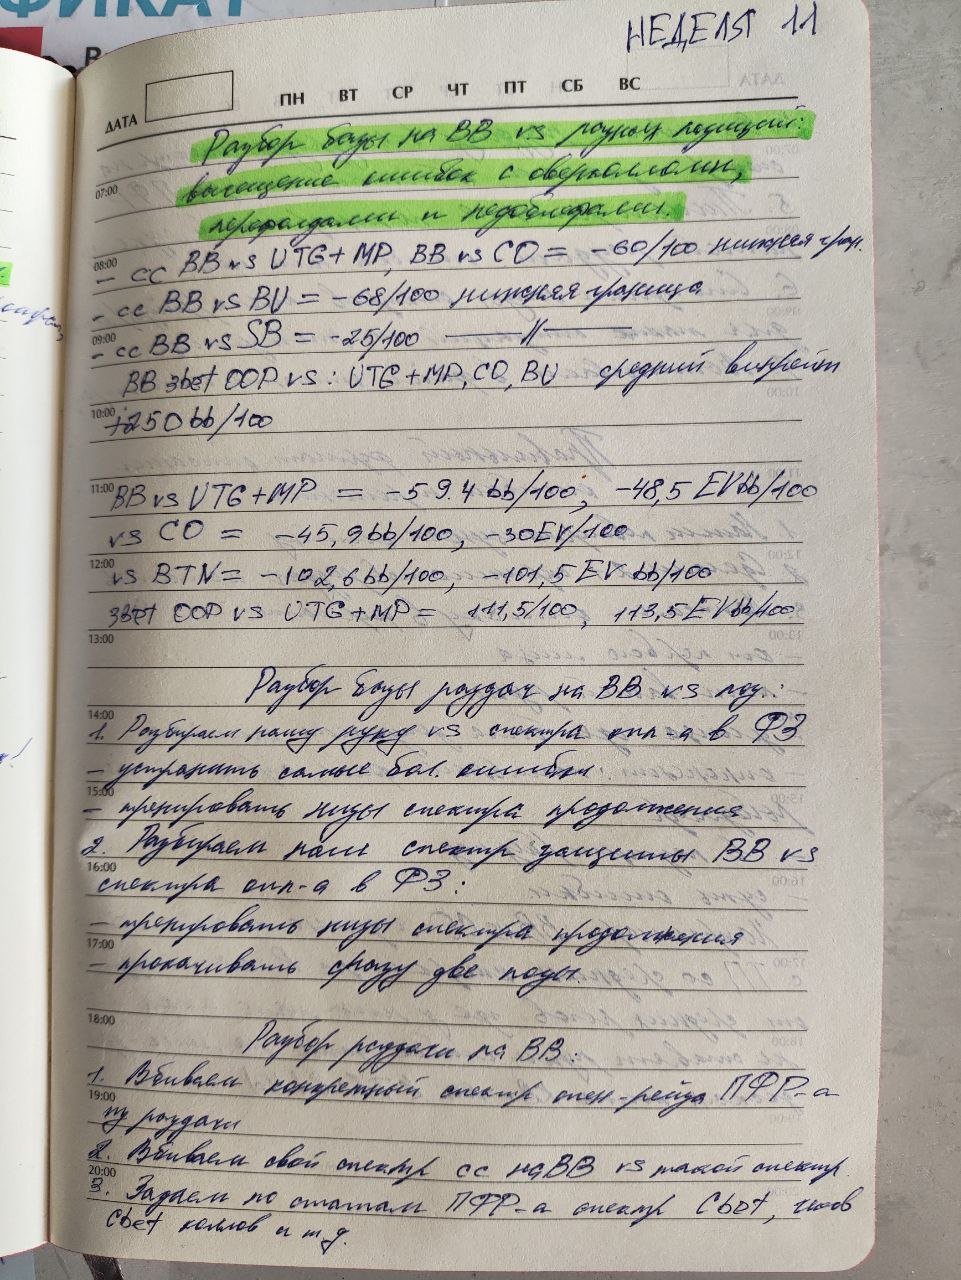 ФИКАТ
НЕДЕЛЯ 11
ДАТА ПН ВТ СР ЧТ ПТ СБ ВС
Разбор базы на BB vs разных позиций:
07:00
вычищение ошибок с оверколлами,
перефолдами и недоблефами.
08:00
- cc BB vs UTG+MP, BB vs CO = -60/100 нижняя гран.
- cc BB vs BU = -68/100 нижняя граница
09:00
- cc BB vs SB = -25/100 —//—
BB 3bet OOP vs: UTG+MP, CO, BU средний винрейт
10:00
+250bb/100
11:00
BB vs UTG+MP = -59.4 bb/100, -48,5 EVbb/100
vs CO = -45,9bb/100, -30EV/100
12:00
vs BTN = -102,6bb/100, -101,5 EVbb/100
3bet OOP vs UTG+MP = 111,5/100, 113,5EVbb/100
13:00
Разбор базы раздач на BB vs поз.:
14:00
1. Разбираем нашу руку vs спектра опп-а в ФЗ
- устранить самые бол. ошибки.
15:00
- тренировать низы спектра продолжения
2. Разбираем наш спектр защиты BB vs
16:00
спектра опп-а в ФЗ:
- тренировать низы спектра продолжения
17:00
- прокачивать сразу две позы.
18:00
Разбор раздачи на BB:
1. Вбиваем конкретный спектр опен-рейза ПФР-а
19:00
из раздачи
2. Вбиваем свой спектр cc на BB vs такой спектр.
20:00
3. Задаем по статам ПФР-а спектр Cbet, чеков
Cbet коллов и т.д.